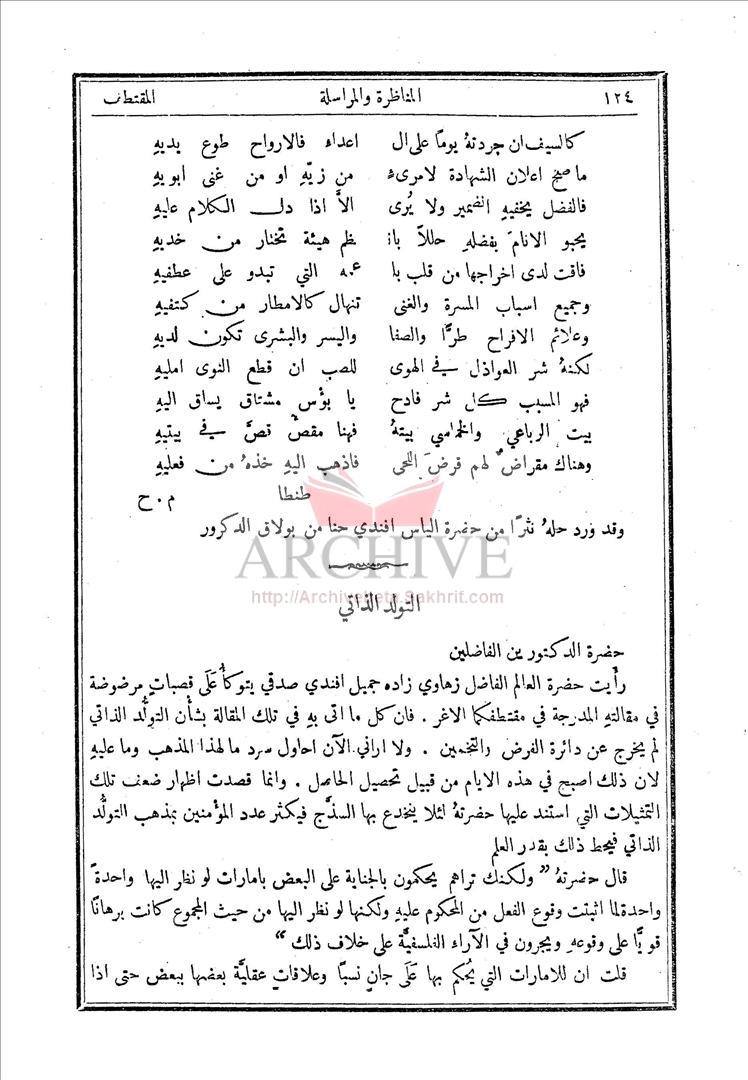 ١٢٤ المناظرة والمراسلة المقتطف
كالسيف ان جردتهُ يومًا على ال اعداء فالارواح طوع يديهِ
ما صحَّ اعلان الشهادة لامرىءٍ من زيّهِ او من غنى ابويهِ
فالفضل يخفيهِ الضمير ولا يُرى الاَّ اذا دلَّ الكلام عليهِ
يحبو الانامَ بفضلهِ حللاً باـ ـظم هيئة تختار من خديهِ
فاقت لدى اخراجها من قلب با التي تبدو على عطفيهِ
وجميع اسباب المسرة والغنى تنهال كالامطار من كتفيهِ
وعلائم الافراح طرًّا والصفا واليسر والبشرى تكون لديهِ
لكنهُ شر العواذل في الهوى للصب ان قطع النوى امليهِ
فهو المسبب كل شر فادح يا بؤس مشتاق يساق اليهِ
بيت الرباعي والخماسي بيتهُ فهنا مقصٌّ قصَّ في بيتيهِ
وهناك مقراضٌ لهم قرضَ اللحى فاذهب اليهِ خذهُ من فعليهِ
طنطا م . ح
وقد ورد حلهُ نثرًا من حضرة الياس افندي حنا من بولاق الدكرور
ARCHIVE
http://Archivebeta.Sakhrit.com
التولد الذاتي
حضرة الدكتورين الفاضلين
رأيت حضرة العالم الفاضل زهاوي زاده جميل افندي صدقي يتوكأُ عَلَى قصباتٍ مرضوضة
في مقالتهِ المدرجة في مقتطفكما الاغر . فان كل ما اتى بهِ في تلك المقالة بشأن التولُّد الذاتي
لم يخرج عن دائرة الفرض والتخمين . ولا اراني الآن احاول سرد ما لهذا المذهب وما عليهِ
لان ذلك اصبح في هذه الايام من قبيل تحصيل الحاصل . وانما قصدت اظهار ضعف تلك
التمثيلات التي استند عليها حضرتهُ لئلا ينخدع بها السذَّج فيكثر عدد المؤمنين بمذهب التولُّد
الذاتي فيحط ذلك بقدر العلم
قال حضرتهُ " ولكنك تراهم يحكمون بالجناية على البعض بامارات لو نظر اليها واحدةً
واحدة لما اثبتت وقوع الفعل من المحكوم عليهِ ولكنها لو نظر اليها من حيث المجموع كانت برهانًا
قويًّا على وقوعهِ ويجرون في الآراء الفلسفيَّة على خلاف ذلك "
قلت ان للامارات التي يُحكم بها عَلَى جانٍ نسبًا وعلاقات عقليَّة بعضها ببعض حتى اذا